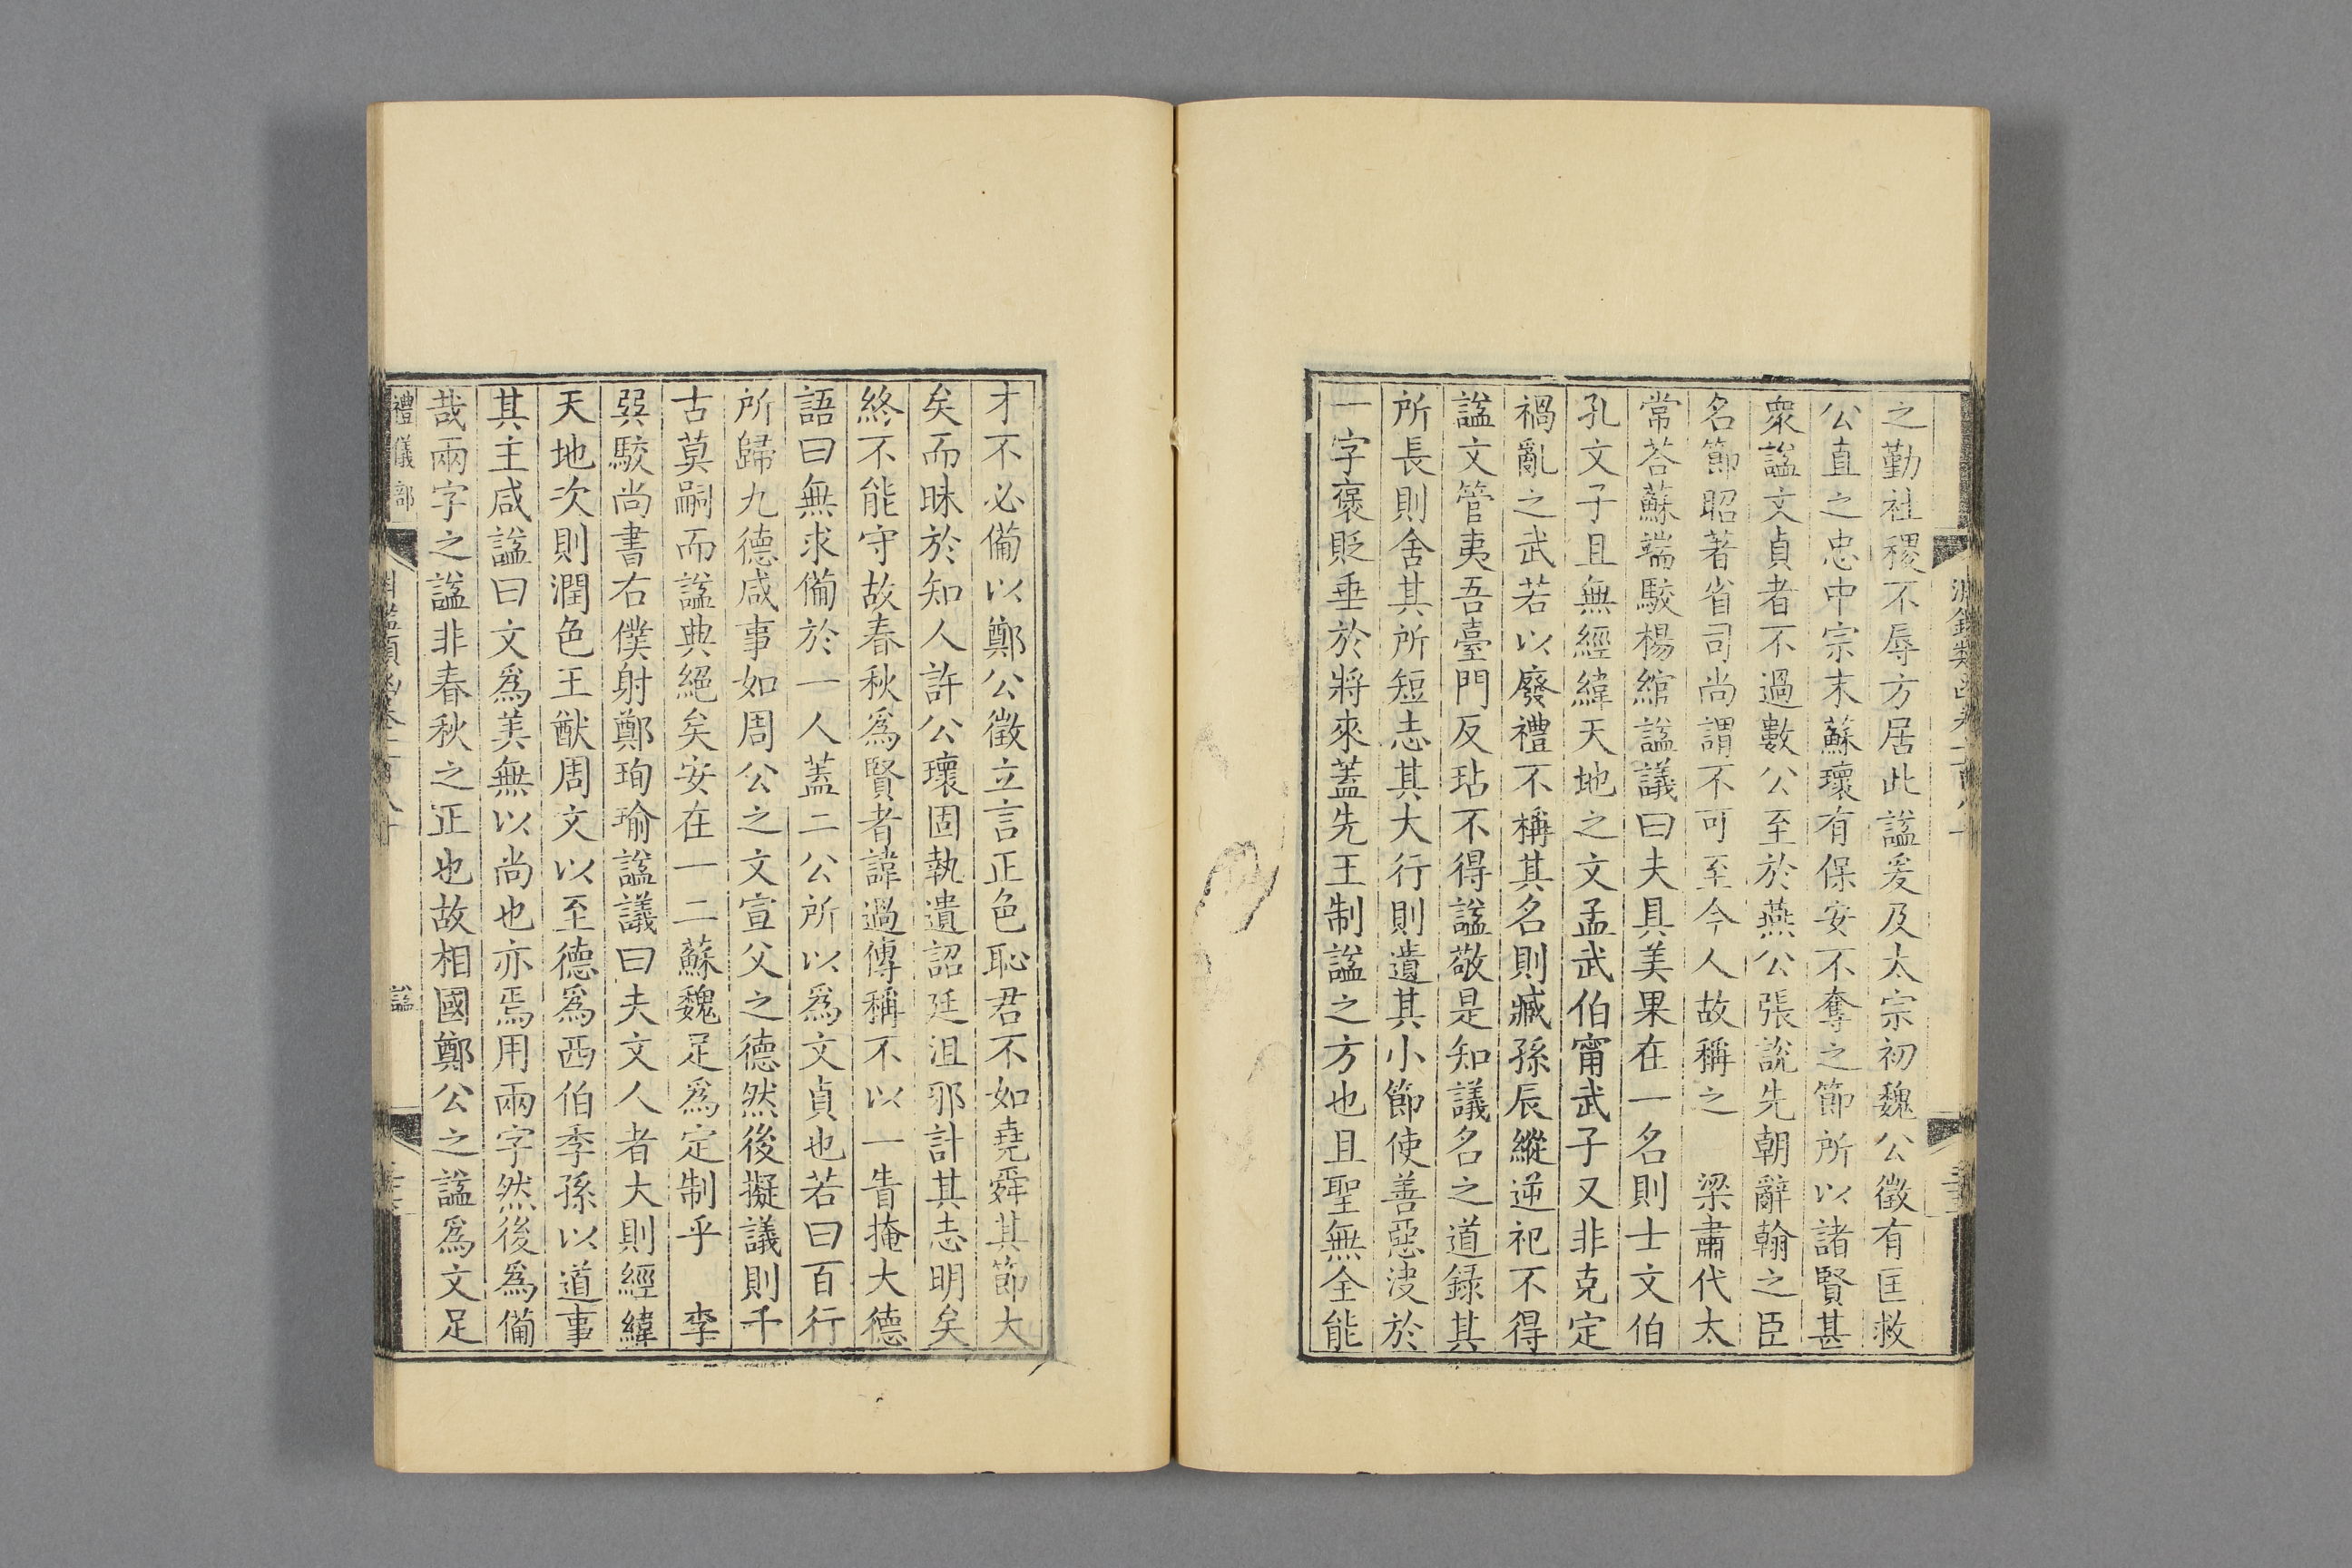 之勤社稷不辱方居此諡爰及太宗初魏公徵有匡救
公直之忠中宗末蘇瓌有保安不奪之節所以諸賢甚
衆諡文貞者不過數公至於燕公張說先朝辭翰之臣
名節昭著省司尚謂不可至今人故稱之　梁肅代太
常荅蘇端駮楊綰諡議曰夫具美果在一名則士文伯
孔文子且無經緯天地之文孟武伯甯武子又非克定
禍亂之武若以廢禮不稱其名則臧孫辰縱逆祀不得
諡文管夷吾臺門反玷不得諡敬是知議名之道録其
所長則舍其所短志其大行則遺其小節使善惡決於
一字褒貶垂於將來蓋先王制諡之方也且聖無全能
才不必備以鄭公徵立言正色恥君不如堯舜其節大
矣而昧於知人許公瓌固執遺詔廷沮邪計其志明矣
終不能守故春秋為賢者諱過傳稱不以一眚掩大德
語曰無求備於一人蓋二公所以為文貞也若曰百行
所歸九德咸事如周公之文宣父之德然後擬議則千
古莫嗣而諡典絕矣安在一二蘇魏足為定制乎　李
巽駮尚書右僕射鄭珣瑜諡議曰夫文人者大則經緯
天地次則潤色王猷周文以至德為西伯季孫以道事
其主咸諡曰文為美無以尚也亦焉用兩字然後為備
哉兩字之諡非春秋之正也故相國鄭公之諡為文足
禮儀部
諡